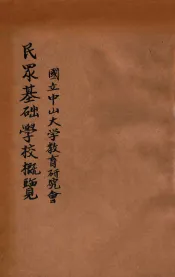 國立中山大学教育研究會
民眾基础學校概覽